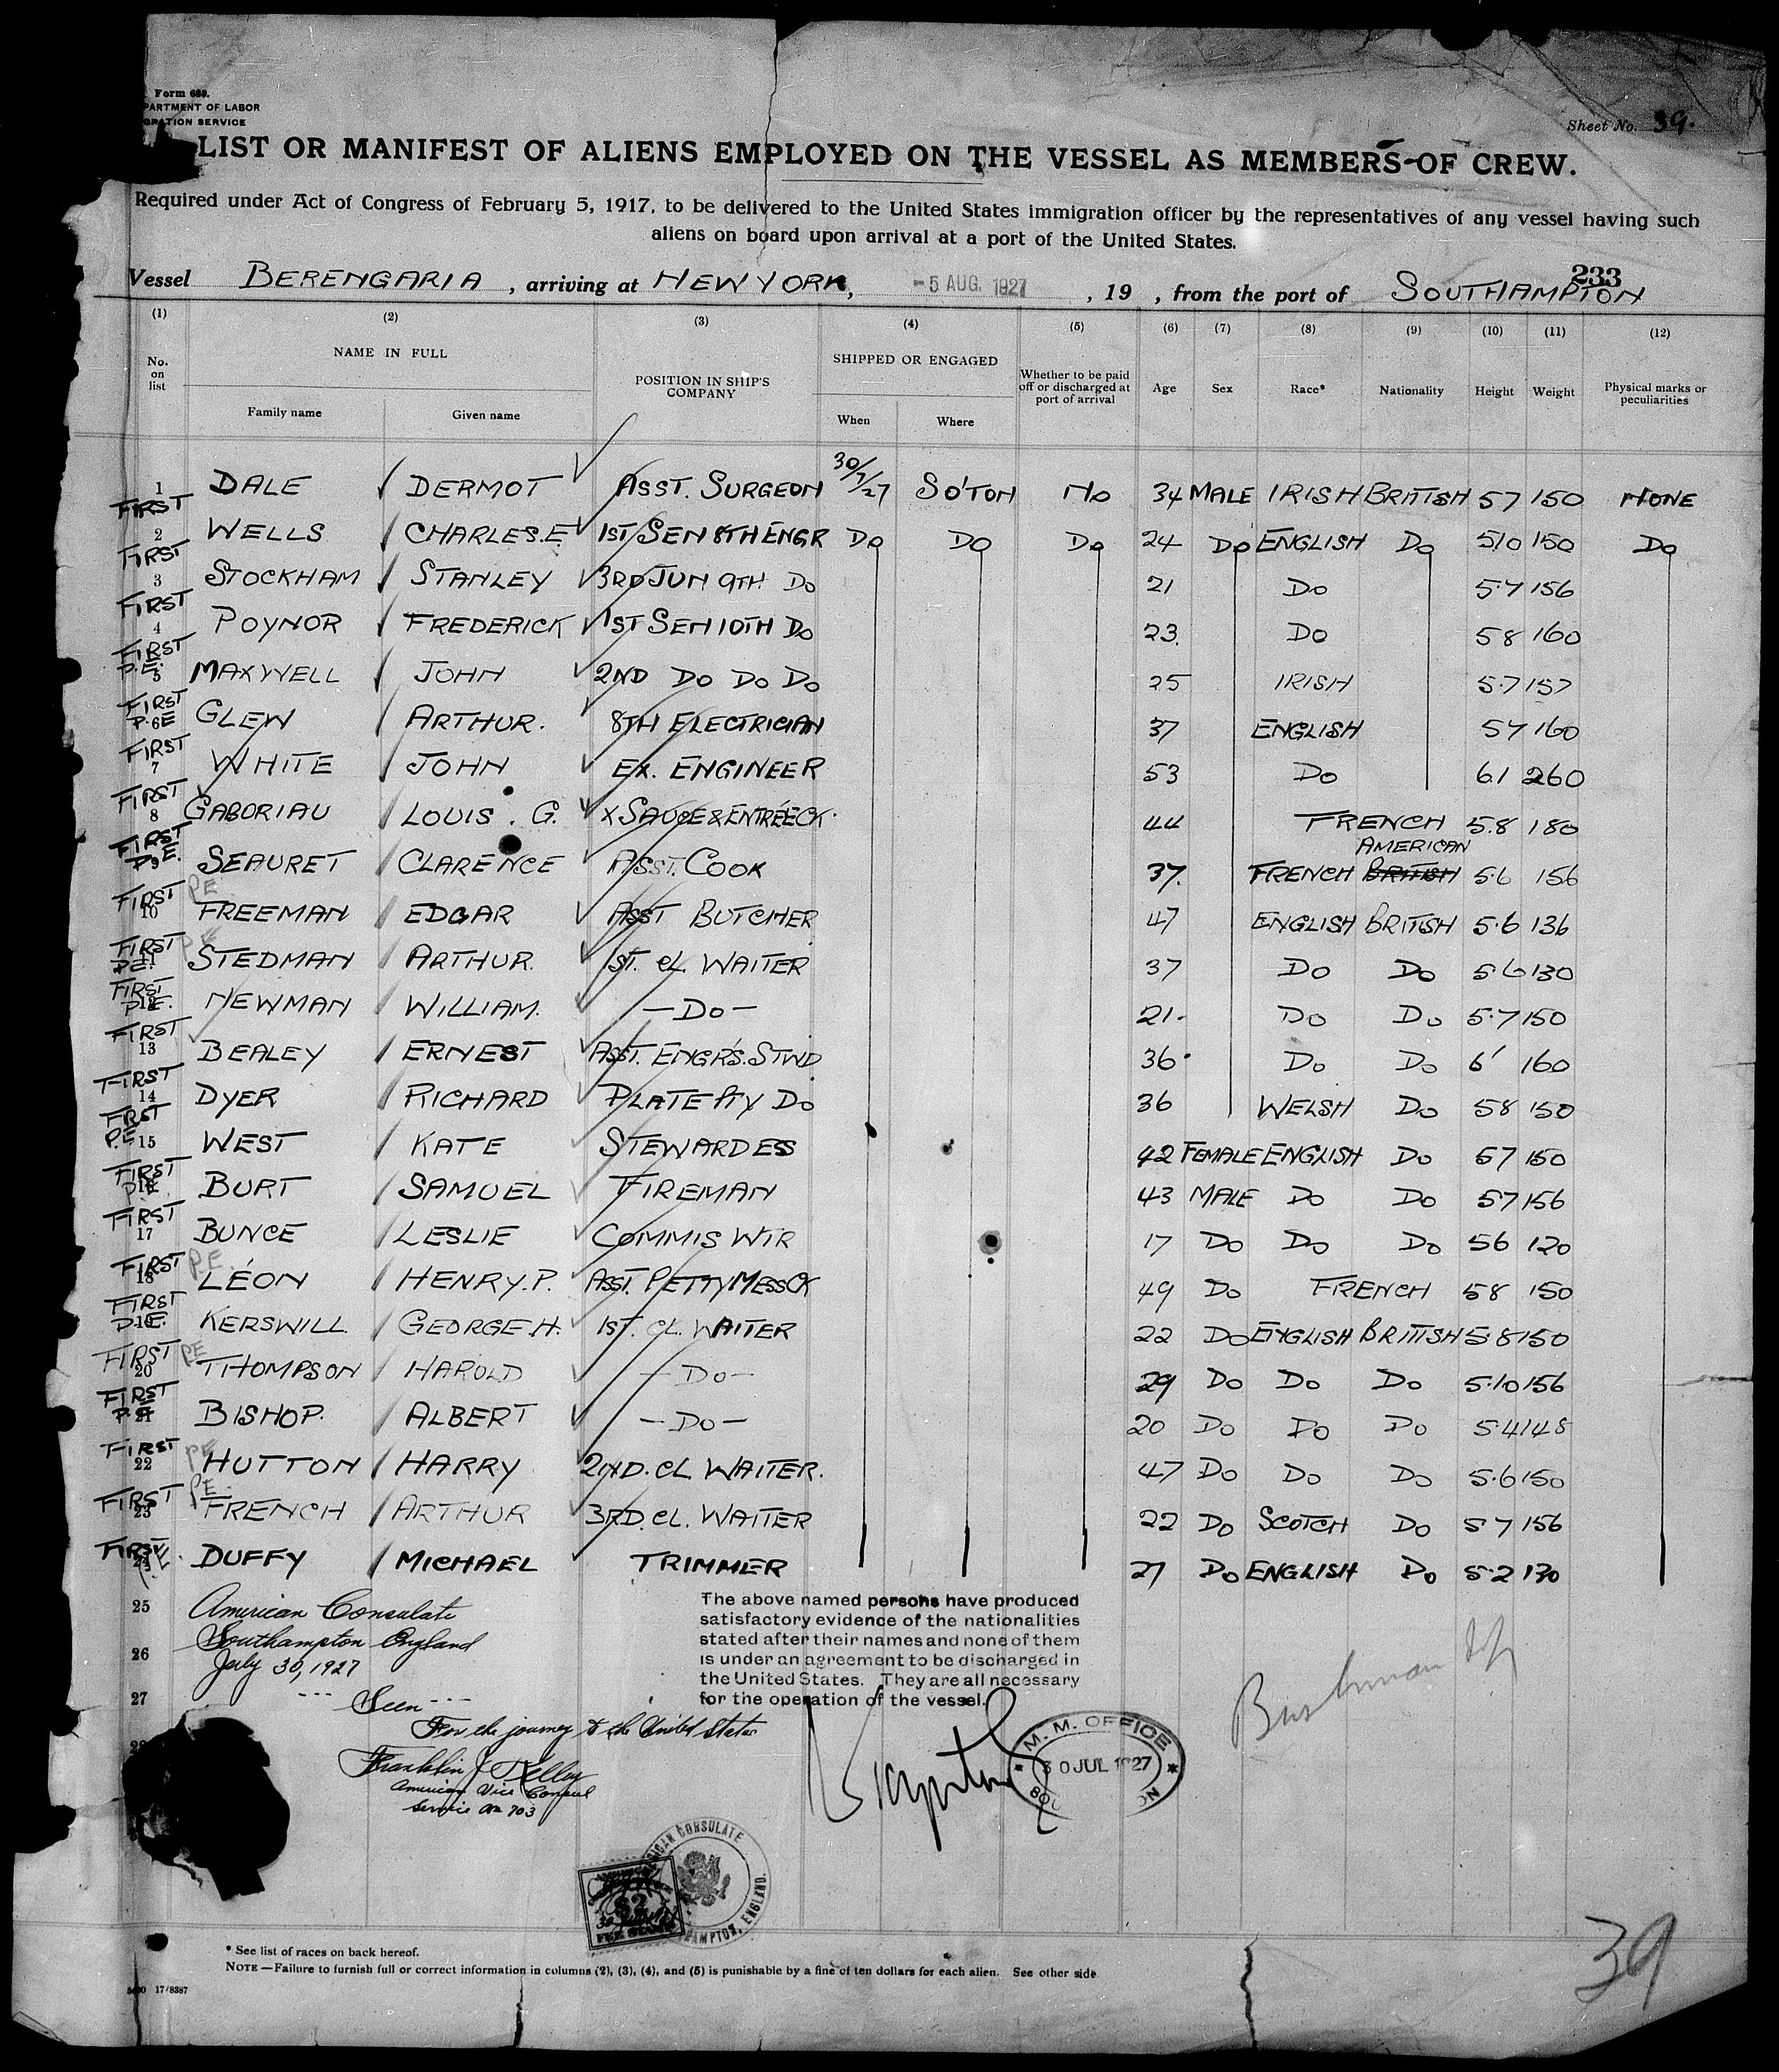 Form 689.
PARTMENT OF LABOR
GRATION SERVICE
Sheet No. 39.
LIST OR MANIFEST OF ALIENS EMPLOYED ON THE VESSEL AS MEMBERS OF CREW.
Required under Act of Congress of February 5, 1917, to be delivered to the United States immigration officer by the representatives of any vessel having such
aliens on board upon arrival at a port of the United States.
233
Vessel BERENGARIA, arriving at NEW YORK, -5 AUG. 1927, 19 , from the port of SOUTHAMPTON
(1) (2) (3) (4) (5) (6) (7) (8) (9) (10) (11) (12)
No. on list NAME IN FULL POSITION IN SHIP'S COMPANY SHIPPED OR ENGAGED Whether to be paid off or discharged at port of arrival Age Sex Race* Nationality Height Weight Physical marks or peculiarities
Family name Given name When Where
1 FIRST DALE DERMOT ASST. SURGEON 30/7/27 SO'TON No 34 MALE IRISH BRITISH 57 150 NONE
2 FIRST WELLS CHARLES.E 1ST SEN 8TH ENGR Do DO Do 24 Do ENGLISH Do 510 150 Do
3 FIRST STOCKHAM STANLEY 3RD JUN 9TH Do 21 Do 5.7 156
4 FIRST POYNOR FREDERICK 1ST SEN 10TH Do 23. Do 58 160
P.E. 5 MAXWELL JOHN 2ND Do Do Do 25 IRISH 5.7 157
FIRST P.E 6 GLEW ARTHUR. 8TH ELECTRICIAN 37 ENGLISH 57 160
FIRST 7 WHITE JOHN EX. ENGINEER 53 Do 6.1 260
FIRST 8 GABORIAU LOUIS. G. X SAUCE & ENTRÉE CK. 44 FRENCH 5.8 180
FIRST P.E. 9 SEAURET CLARENCE ASST. COOK 37. FRENCH BRITISH AMERICAN 5.6 156
FIRST 10 P.E. FREEMAN EDGAR ASST BUTCHER 47 ENGLISH BRITISH 5.6 136
FIRST P.E. 11 P.E STEDMAN ARTHUR. 1ST. CL. WAITER 37 Do Do 5.6 130
FIRST P.E. 12 NEWMAN WILLIAM. -Do- 21. Do Do 5.7 150
FIRST 13 BEALEY ERNEST ASST. ENGR'S. STWD 36 Do Do 6' 160
FIRST 14 DYER RICHARD PLATE PTY Do 36 WELSH Do 58 150
FIRST P.E. 15 WEST KATE STEWARDESS 42 FEMALE ENGLISH Do 57 150
FIRST P.E. 16 BURT SAMUEL FIREMAN 43 MALE Do Do 57 156
FIRST 17 BUNCE LESLIE COMMIS WTR 17 Do Do Do 56 120
FIRST 18 P.E. LÉON HENRY.P. ASST. PETTY MESS CK 49 Do FRENCH 58 150
FIRST P.E. 19 KERSWILL GEORGE.H. 1ST. CL. WAITER 22 DO ENGLISH BRITISH 5.8 150
FIRST 20 P.E THOMPSON HAROLD -Do- 29 Do Do Do 5.10 156
FIRST P.E. 21 BISHOP. ALBERT -Do- 20 Do Do Do 5.4 148
FIRST 22 P.E HUTTON HARRY 2ND. CL WAITER. 47 Do Do Do 5.6 150
FIRST 23 P.E. FRENCH ARTHUR 3RD. CL. WAITER 22 Do SCOTCH Do 57 156
FIRST P.E. 24 DUFFY MICHAEL TRIMMER 27 Do ENGLISH Do 5.2 130
25 American Consulate
Southampton England
26 July 30, 1927
27 --- Seen ---
For the journey to the United States
28
Franklin J Kelley
American Vice Consul
Service No 703
The above named persons have produced
satisfactory evidence of the nationalities
stated after their names and none of them
is under an agreement to be discharged in
the United States. They are all necessary
for the operation of the vessel.
M. M. OFFICE
30 JUL 1927
AMERICAN CONSULATE
HAMPTON, ENGLAND.
$2
FEE STAMP
39
* See list of races on back hereof.
NOTE—Failure to furnish full or correct information in columns (2), (3), (4), and (5) is punishable by a fine of ten dollars for each alien. See other side
17/8387